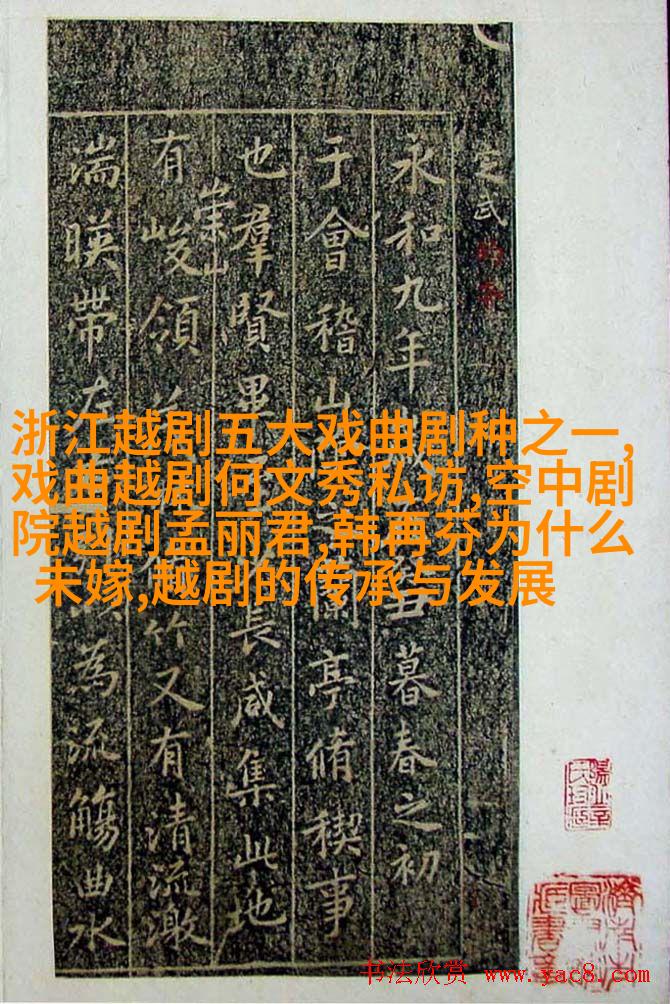 浙江越剧五大戏曲剧种之一,
戏曲越剧何文秀私访,空中剧
院越剧孟丽君,韩再芬为什么
未嫁,越剧的传承与发展
定武
永和九年歲丑暮春之初
于會稽山之蘭亭脩稧事
也羣賢畢長咸集此地
有崇山峻領竹又有清流激
湍暎帶左為流觴曲水
书法欣赏 www.yac8.com